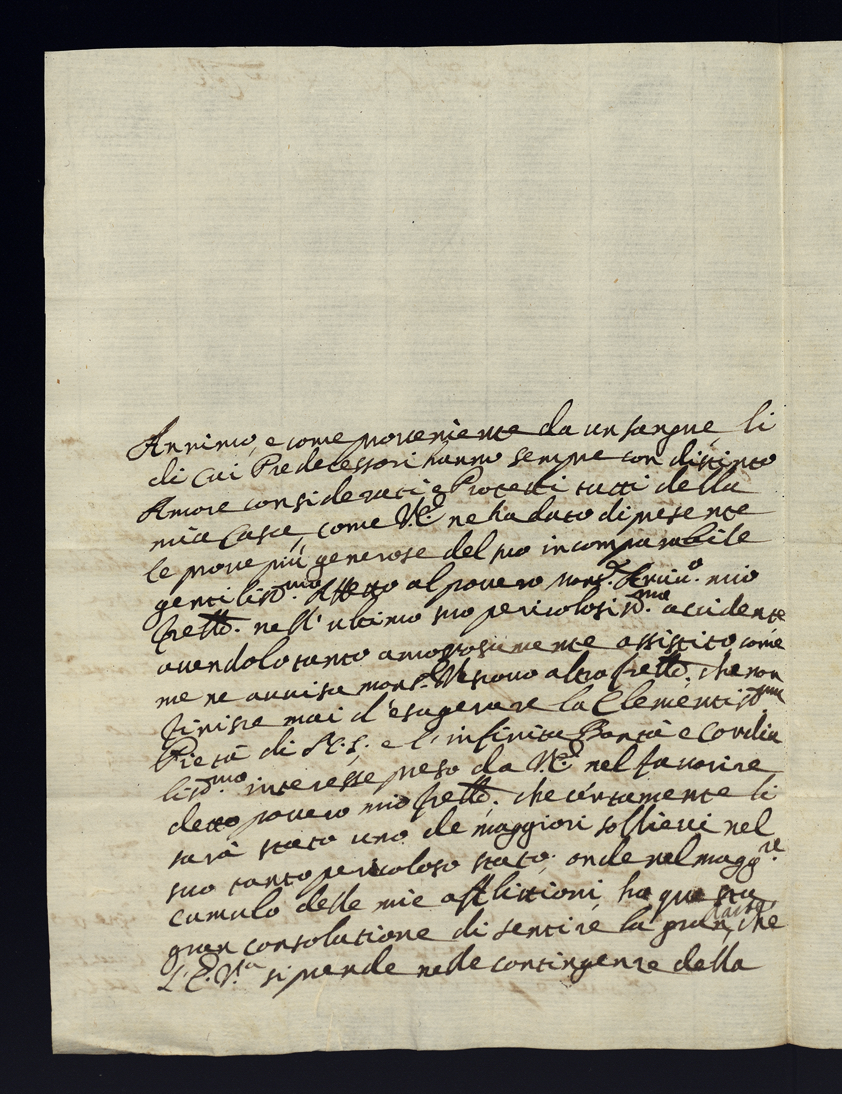 Annimo, e come proveniente da un sangue, li
di cui Predecessori hanno sempre con distinto
Amore considerati e Protetti tutti della
mia Casa, come V.E. ne ha dato di presente
le prove più generose del suo incomparabile
gentiliss.mo Affetto al povero mons.r mio
fratto. nell'ultimo suo pericolosiss.mo accidente
avendolo tanto amorosamente assistito come
me ne avvisa mons.r Vescovo altro fratto. che non
finisce mai d'esagerare la Clementiss.ma
Pietà di N.S. e l'infinita Bontà e Cordia
liss.mo interesse preso da V.E. nel favorire
detto povero mio fratto. che certamente li
sarà stato uno de maggiori sollievi nel
suo tanto pericoloso stato; onde nel magg.re
cumulo delle mie afflittioni, ha questa
gran consolatione di sentire la gran parte, che
L'E.V.a si prende nelle contingenze della